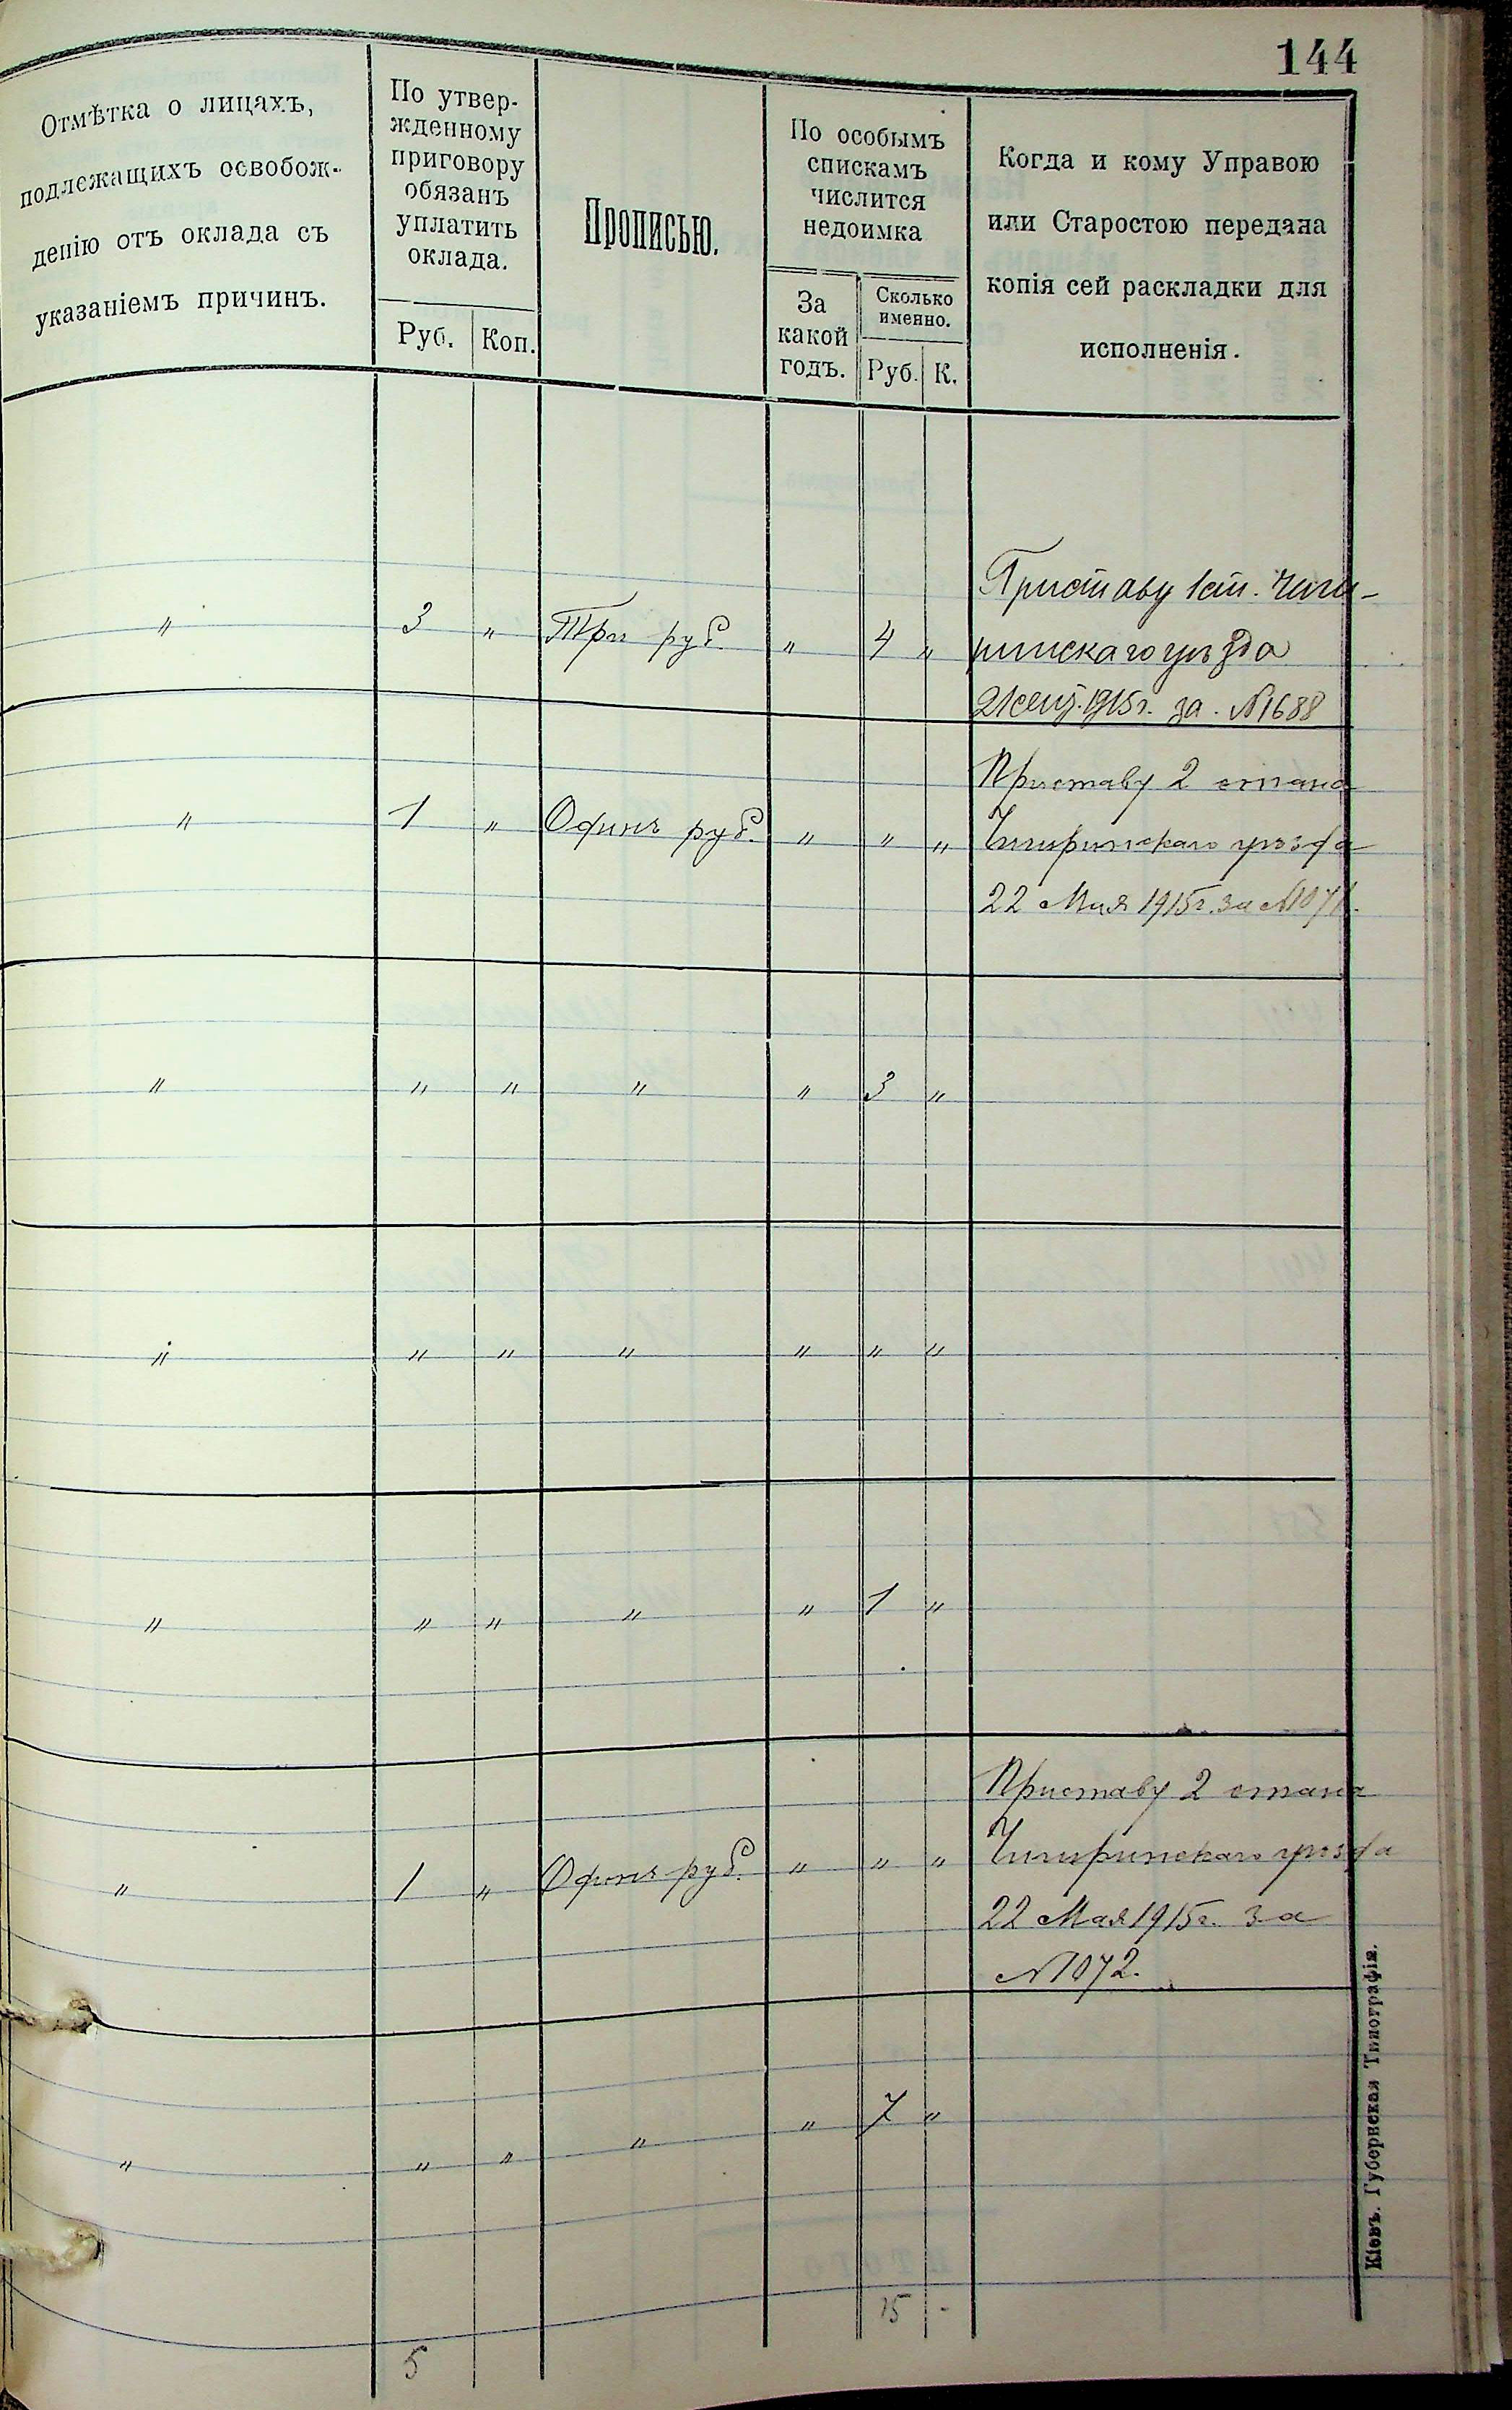 144
Отмѣтка о лицахъ,
подлежащихъ освобож-
денію отъ оклада съ
указаніемъ причинъ.
По утвер-
жденному
приговору
обязанъ
уплатить
оклада.
Руб. Коп.
Прописью.
По особымъ
спискамъ
числится
недоимка
За
какой
годъ.
Сколько
именно.
Руб. К.
Когда и кому Управою
или Старостою передана
копія сей раскладки для
исполненія.
Приставу 1 ст. Чиги-
" 3 " Три руб. " 4 " ринскаго уѣзда
21 сент. 1915 г. за. №1688
Приставу 2 стана
" 1 " Одинъ руб. " " " Чигиринскаго уѣзда
22 Мая 1915 г. за №1071.
" " " " " 3 "
" " " " " " "
" " " " " 1 "
Приставу 2 стана
" 1 " Одинъ руб. " " " Чигиринскаго уѣзда
22 Мая 1915 г. за
№1072.
" " " " " 7 "
15 -
5
Кіевъ. Губернская Типографія.